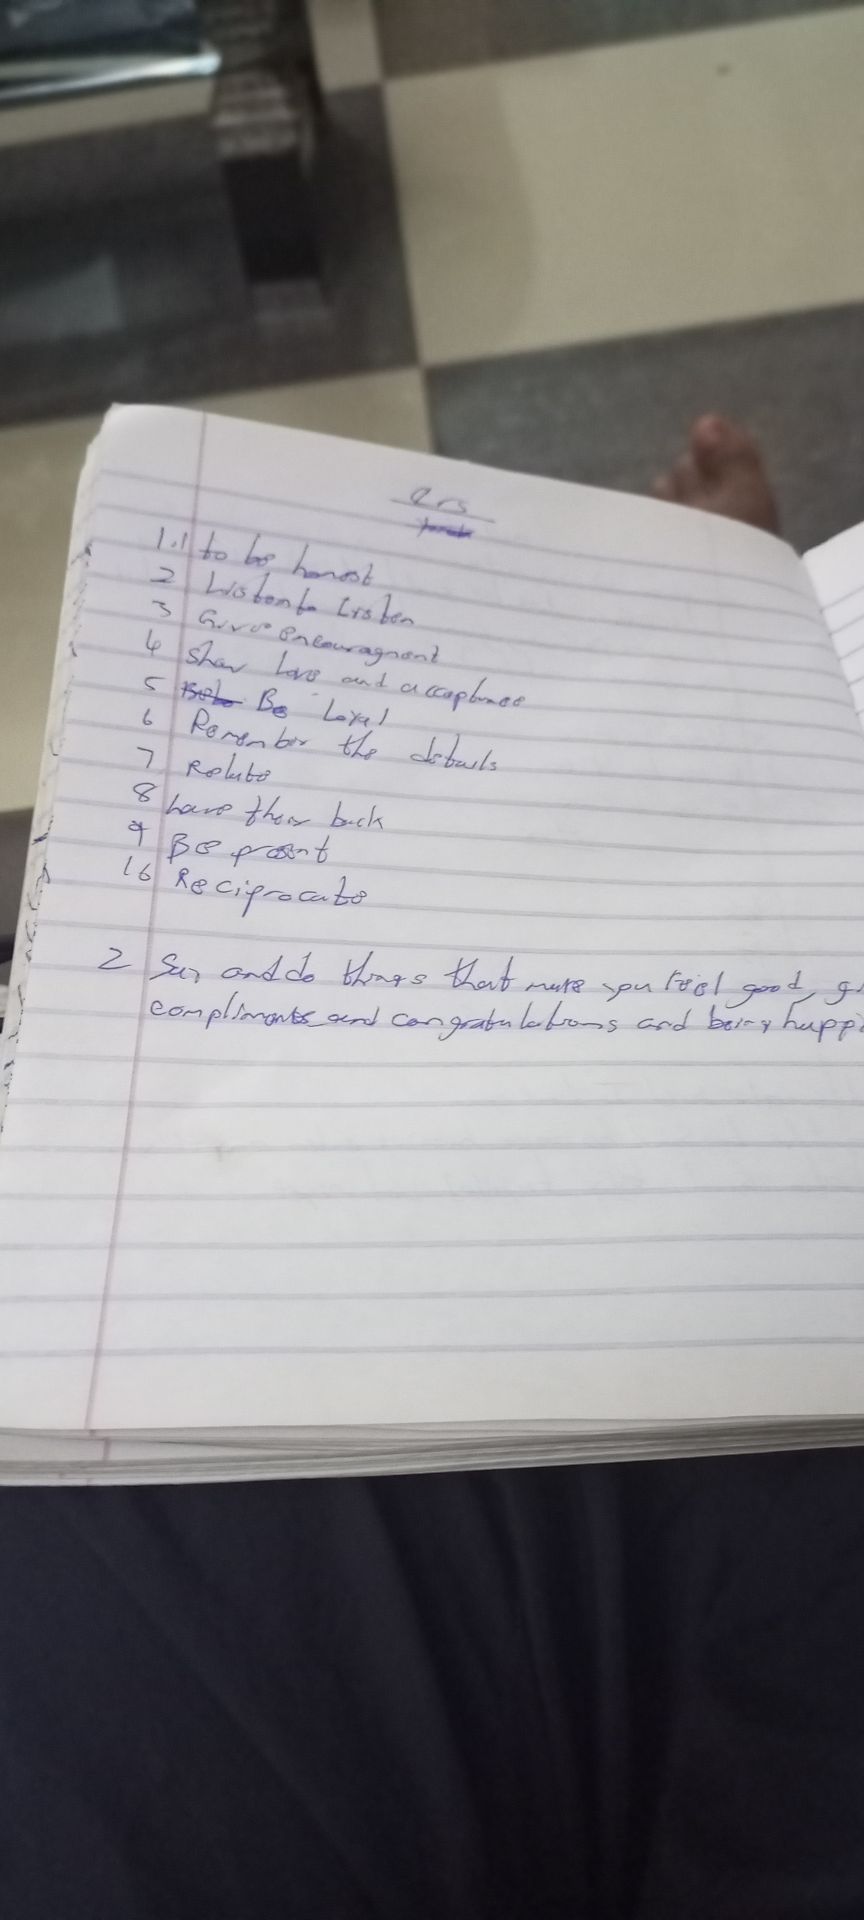 Qrs
1.1 to be honest
2 Listen to Listen
3 Give encouragment
4 Show love and acceptance
5 Be Loyal
6 Remember the details
7 Relate
8 have their back
9 Be present
10 Reciprocate
2 Say and do things that make you feel good, g
compliments and congratulations and being happi